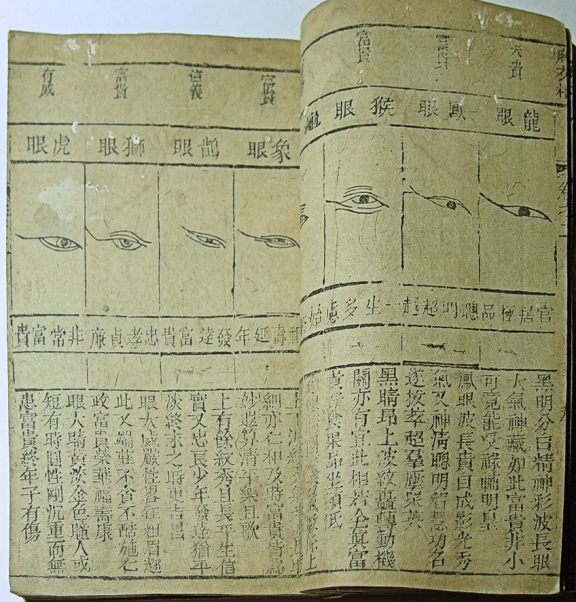 大貴
龍眼
官居極品
黑明分白精神彩波長眼
大氣神藏如此富貴非小
可竟能受祿輔明皇
富貴
鳳眼
聰明超越
鳳眼波長貴自成影光秀
氣又神清聰明智慧功名
遂拔萃超群壓眾英
富貴
猴眼
一生多慮
黑睛昂上波紋疊轉動機
關亦有宜此相若全真富
貴好食果品坐頭低
始
富貴
象眼
福壽延年
細亦仁和及時富貴皆為
妙遐算清平樂且歌
信義
鵲眼
發達富貴
上有餘紋秀且長平生信
實又忠良少年發達猶平
淡終末之時更吉昌
富貴
獅眼
忠孝貞廉
眼大威嚴性畧狂粗眉趂
此又端莊不貪不酷施仁
政富貴榮華福壽康
有威
虎眼
非常富貴
眼大睛黃淡金色瞳人或
短有時圓性剛沉重而無
患富貴終年子有傷